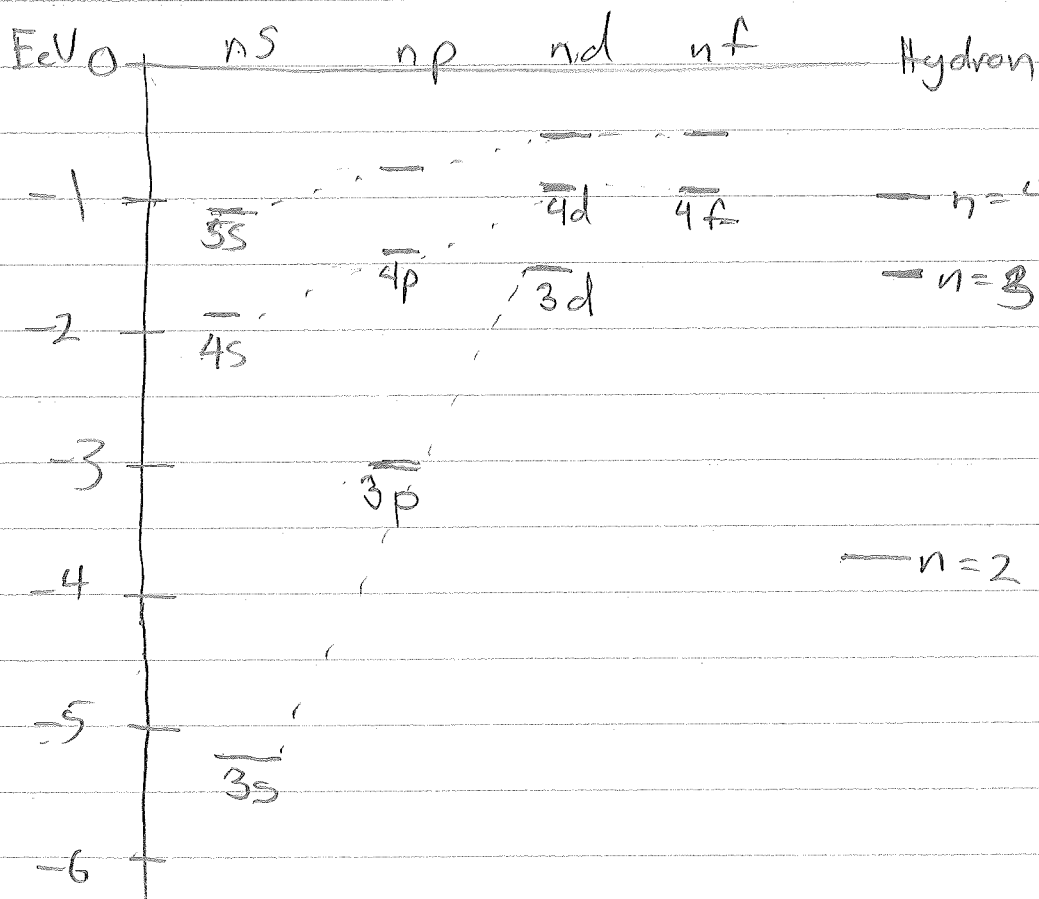 EeV 0 ns np nd nf Hydron
-1 5s 4d 4f n=
4p 3d n=3
-2 4s
-3 3p
-4 n=2
-5 3s
-6